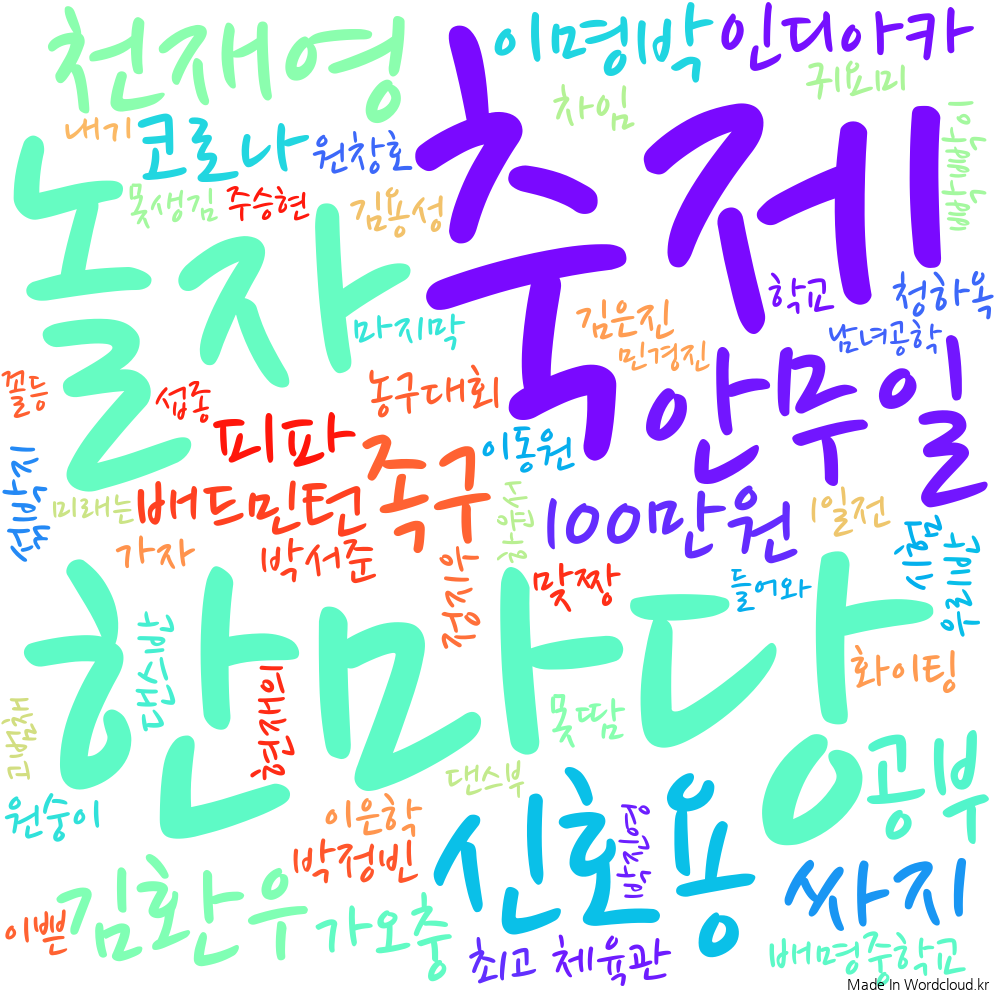 천재영
이명박
인디아카
차임
귀요미
내기
코로나
원창호
축제
못생김
주승현
김용성
놀자
마지막
학교
청하옥
김은진
남녀공학
민경진
꼴등
섭종
농구대회
피파
족구
이동원
안무일
섞박지
미래는
배드민턴
하윤서
100만원
1일전
가자
박서준
정지우
맞짱
들어와
한마당
댄스비고
현재의
고범채
못땀
화이팅
원숭이
댄스부
공부
이은학
박정빈
신호용
싸지
이쁜
김환우
가오충
최고
체육관
배명중학교
Made In Wordcloud.kr